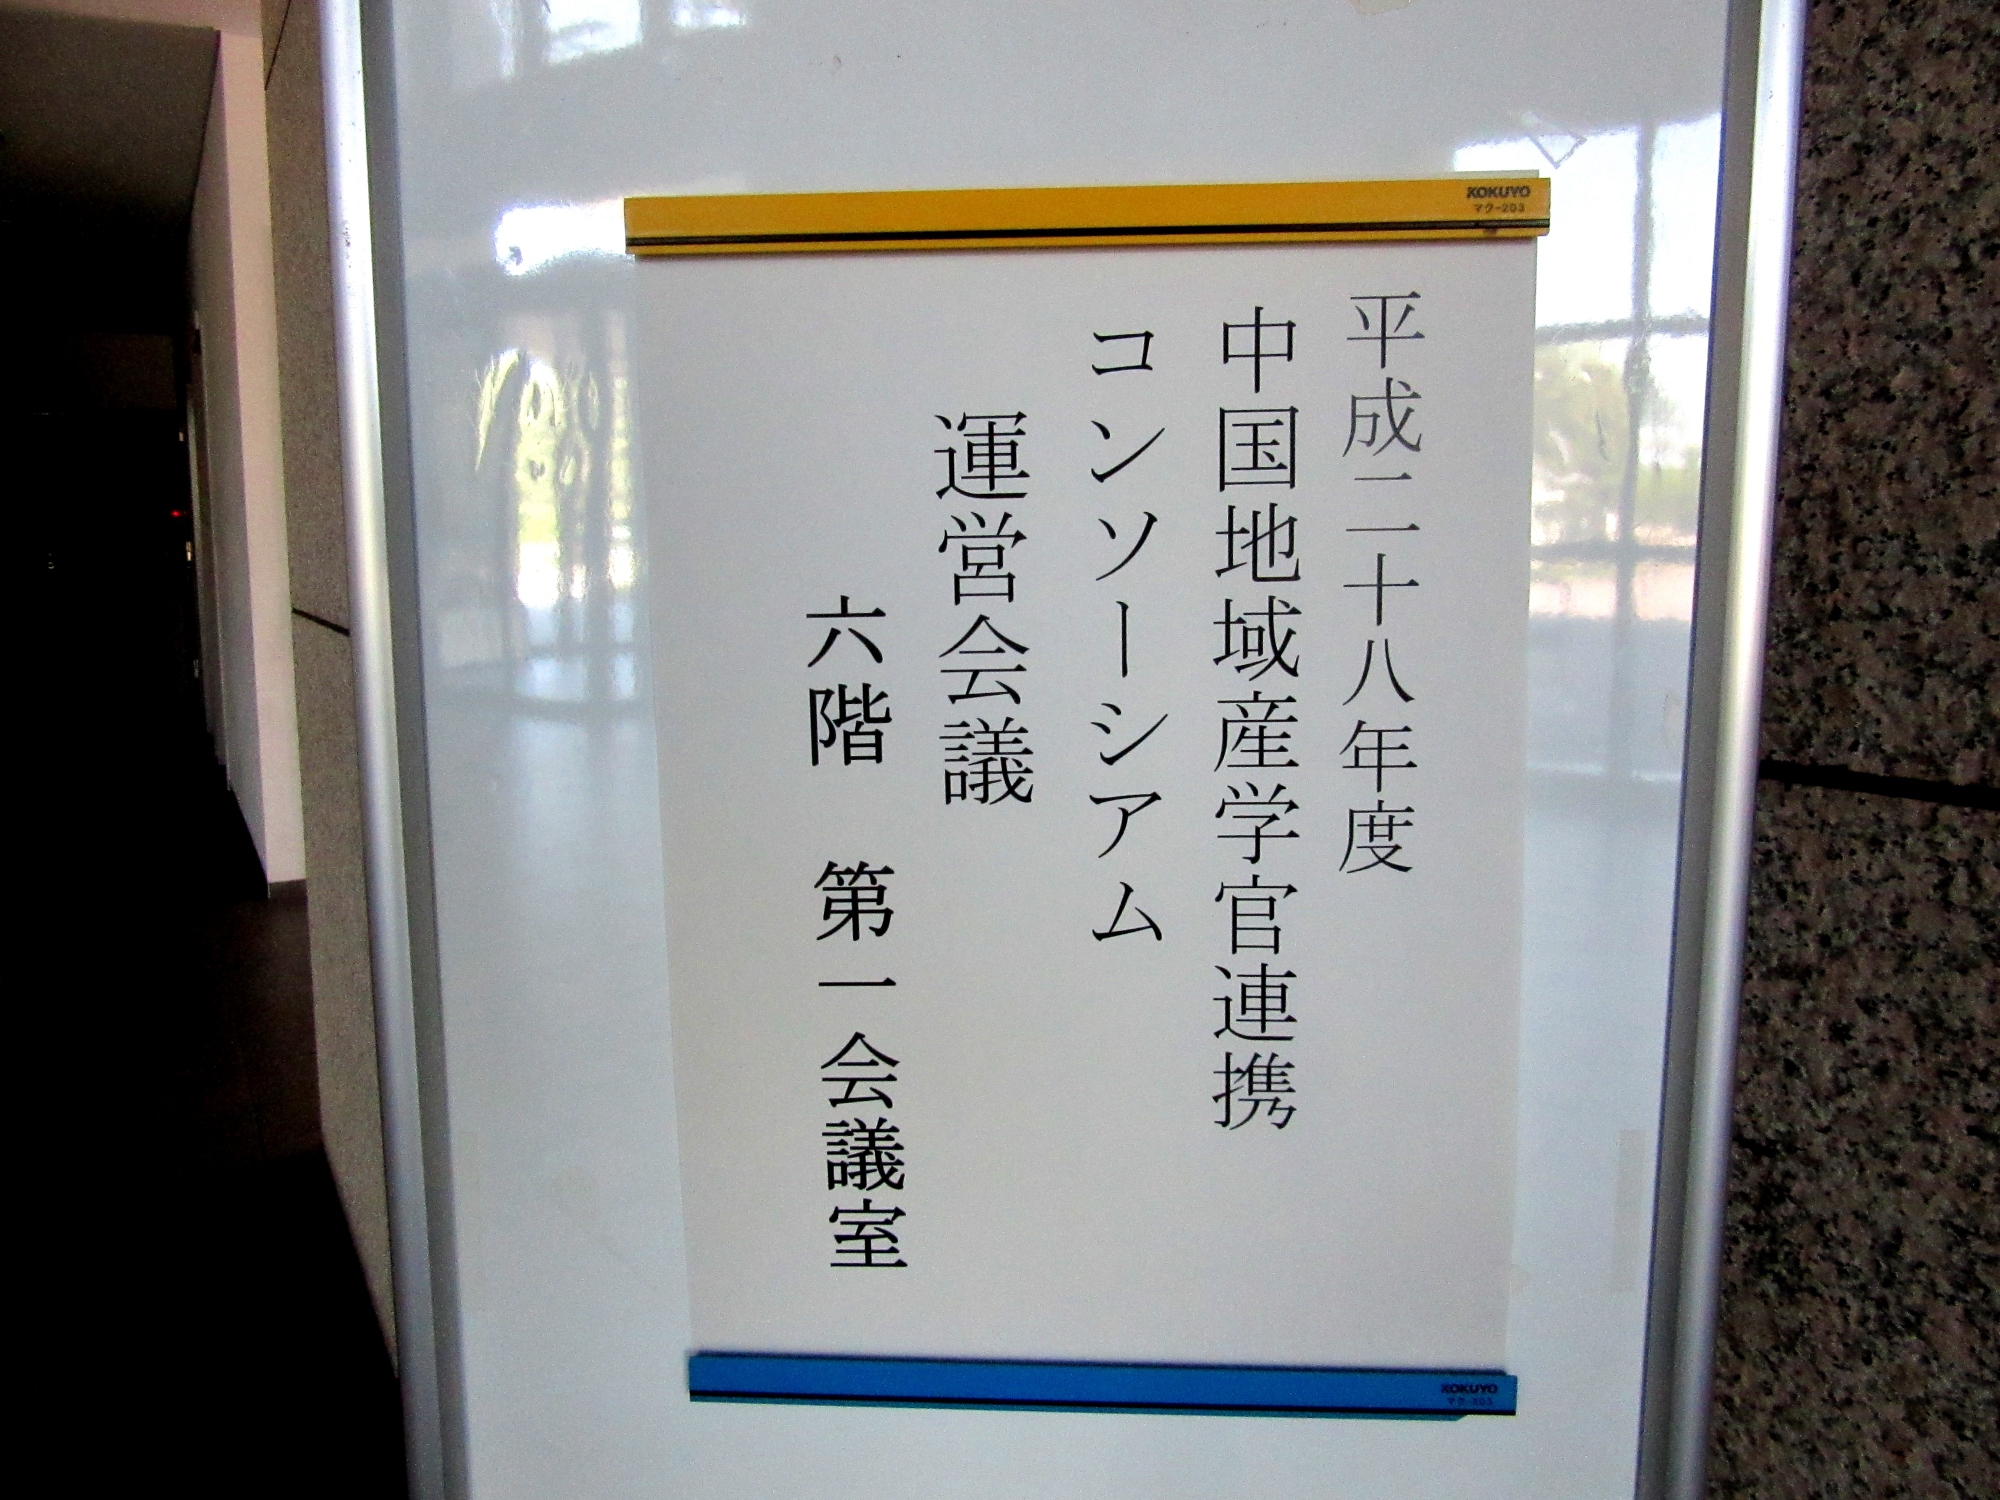 KOKUYO
マク-203
平成二十八年度
中国地域産学官連携
コンソーシアム
運営会議
六階　第一会議室
KOKUYO
マク-203